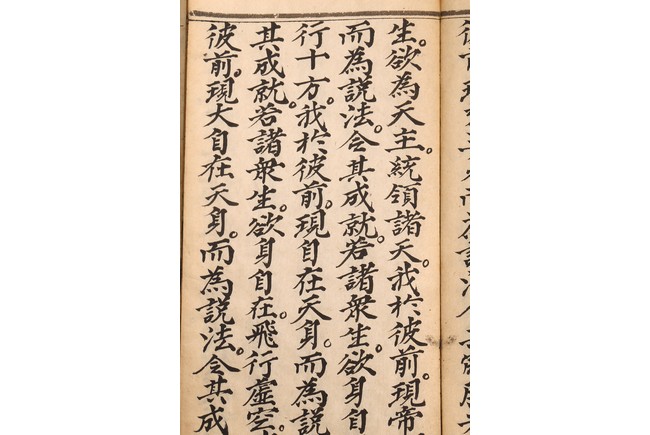 生。欲為天主。統領諸天。我於彼前。現帝
而為說法。令其成就。若諸衆生。欲身自
行十方。我於彼前。現自在天身。而為說
其成就。若諸衆生。欲身自在。飛行虛空。
彼前。現大自在天身。而為說法。令其成